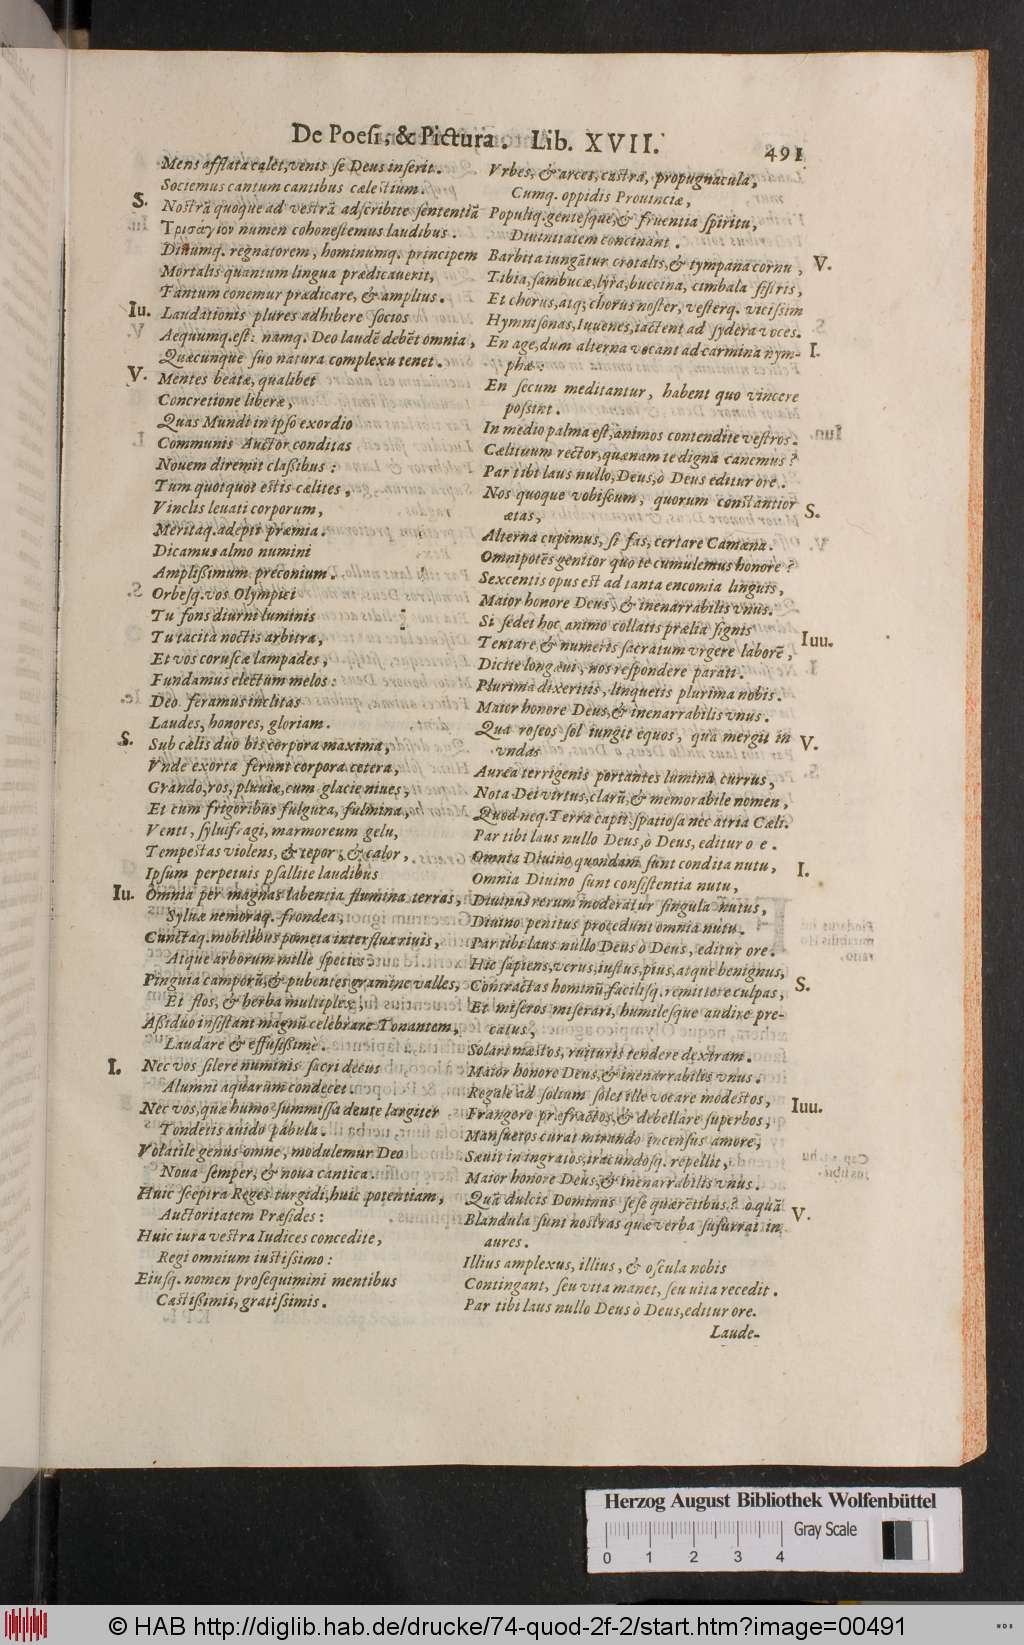 De Poesi, & Pictura. Lib. XVII.
491
Mens afflata calet, venis se Deus inserit.
Sociemus cantum cantibus cælestium.
S. Nostrã quoque ad vestrã adscribite sententiã
Τρισάγιον numen cohonestemus laudibus.
Diuumq. regnatorem, hominumq. principem
Mortalis quantum lingua prædicauerit,
Tantum conemur prædicare, & amplius.
Iu. Laudationis plures adhibere socios
Aequumq. est: namq. Deo laudẽ debẽt omnia,
Quæcunque suo natura complexu tenet.
V. Mentes beatæ, qualibet
Concretione liberæ,
Quas Mundi in ipso exordio
Communis Auctor conditas
Nouem diremit classibus:
Tum quotquot estis cælites,
Vinclis leuati corporum,
Meritaq. adepti præmia.
Dicamus almo numini
Amplissimum preconium.
Orbesq. vos Olympici
Tu fons diurni luminis
Tu tacita noctis arbitra,
Et vos coruscæ lampades,
Fundamus electum melos:
Deo feramus inclitas
Laudes, honores, gloriam.
S. Sub cælis duo bis corpora maxima,
Vnde exorta ferunt corpora cetera,
Grando, ros, pluuiæ, cum glacie niues,
Et cum frigoribus fulgura, fulmina,
Venti, syluifragi, marmoreum gelu,
Tempestas violens, & tepor, & calor,
Ipsum perpetuis psallite laudibus
Iu. Omnia per magnas labentia flumina terras,
Syluæ nemoraq. frondea,
Cunctaq. mobilibus pometa interflua riuis,
Atque arborum mille species
Pinguia camporũ, & pubentes gramine valles,
Et flos, & herba multiplex,
Assiduo insistant magnũ celebrare Tonantem,
Laudare & effusissime.
I. Nec vos silere numinis sacri decus
Alumni aquarum condecet.
Nec vos, quæ humo summissa dente largiter
Tondetis auido pabula.
Volatile genus omne, modulemur Deo
Noua semper, & noua cantica.
Huic sceptra Reges turgidi, huic potentiam,
Auctoritatem Præsides:
Huic iura vestra Iudices concedite,
Regi omnium iustissimo:
Eiusq. nomen prosequimini mentibus
Castissimis, gratissimis.
Vrbes, & arces, castra, propugnacula,
Cumq. oppidis Prouinciæ,
Populiq. gentesque, & fruentia spiritu,
Diuinitatem concinant.
Barbita iungãtur crotalis, & tympana cornu, V.
Tibia, sambucæ, lyra, buccina, cimbala sistris,
Et chorus, atq; chorus noster, vesterq. vicissim
Hymnisonas, Iuuenes, iactent ad sydera voces.
En age, dum alterna vocant ad carmina nym- I.
phæ:
En secum meditantur, habent quo vincere
possint.
In medio palma est, animos contendite vestros.
Cælituum rector, quænam te digna canemus?
Par tibi laus nullo, Deus, ò Deus editur ore.
Nos quoque vobiscum, quorum constantior S.
ætas,
Alterna cupimus, si fas, certare Camæna.
Omnipotẽs genitor quo te cumulemus honore?
Sexcentis opus est ad tanta encomia linguis,
Maior honore Deus, & inenarrabilis vnus.
Si sedet hoc animo collatis prælia signis Iuu.
Tentare, & numeris sacratum vrgere laborẽ,
Dicite longæui, nos respondere parati.
Plurima dixeritis, linquetis plurima nobis.
Maior honore Deus, & inenarrabilis vnus.
Qua roseos sol iungit equos, quà mergit in V.
vndas
Aurea terrigenis portantes lumina currus,
Nota Dei virtus, clarũ, & memorabile nomen,
Quod neq. Terra capit spatiosa nec atria Cæli.
Par tibi laus nullo Deus, ò Deus, editur o e.
Omnia Diuino quondam sunt condita nutu, I.
Omnia Diuino sunt consistentia nutu,
Diuinus rerum moderatur singula nutus,
Diuino penitus procedunt omnia nutu.
Par tibi laus nullo Deus ò Deus, editur ore.
Hic sapiens, verus, iustus, pius, atque benignus, S.
Contractas hominũ, facilisq. remittere culpas,
Et miseros miserari, humilesque audire pre-
catus,
Solari mæstos, ruituris tendere dextram.
Maior honore Deus, & inenarrabilis vnus.
Regale ad solium solet ille vocare modestos, Iuu.
Frangere præfractos, & debellare superbos,
Mansuetos curat mirando incensus amore,
Sæuit in ingratos, iracundosq. repellit,
Maior honore Deus, & inenarrabilis vnus.
Quã dulcis Dominus sese quærẽtibus? ò quã V.
Blandula sunt nostras quæ verba susurrat in
aures.
Illius amplexus, illius, & oscula nobis
Contingant, seu vita manet, seu uita recedit.
Par tibi laus nullo Deus ò Deus, editur ore.
Laude-
Herzog August Bibliothek Wolfenbüttel
Gray Scale
0 1 2 3 4
© HAB http://diglib.hab.de/drucke/74-quod-2f-2/start.htm?image=00491